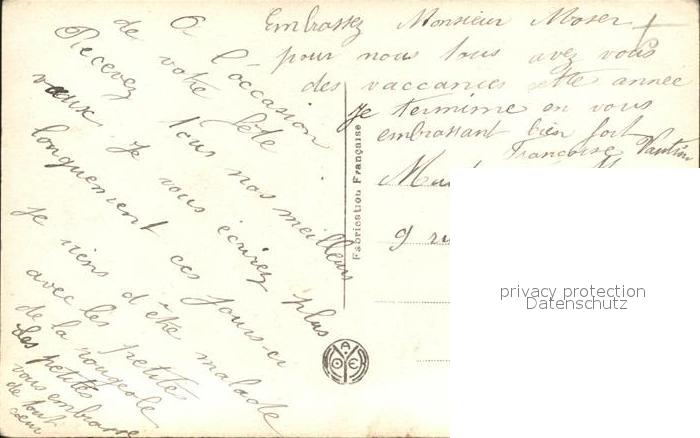 A l'occasion
de votre fête
Recevez tous nos meilleurs
vœux je vous écirez plus
longuement ces jours-ci
je viens d'être malade
avec les petites
de la rougeole
les petites
vous embrasse
de tout
cœur
Embrassez Monsieur Moser
pour nous tous avez vous
des vaccances cette année
Je termime en vous
embrassant bien fort
Françoise Vautrin
9 ru
Fabrication Française
privacy protection
Datenschutz